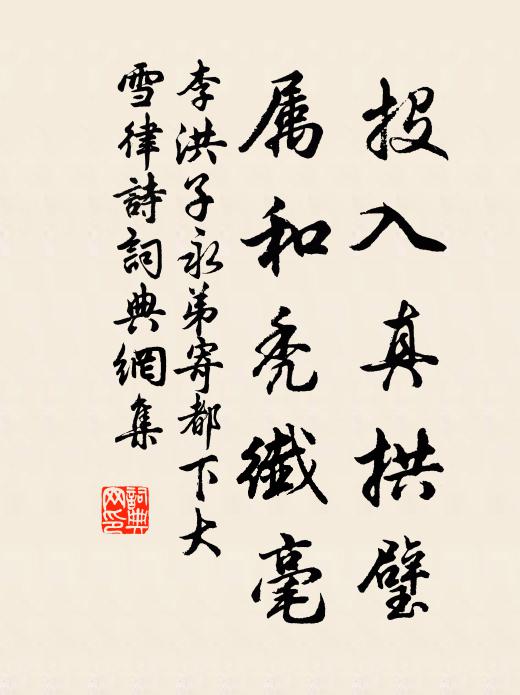 投入真拱璧
属和秃纖毫
李洪子永弟寄都下大
雪律詩詞典網集
詞典网印